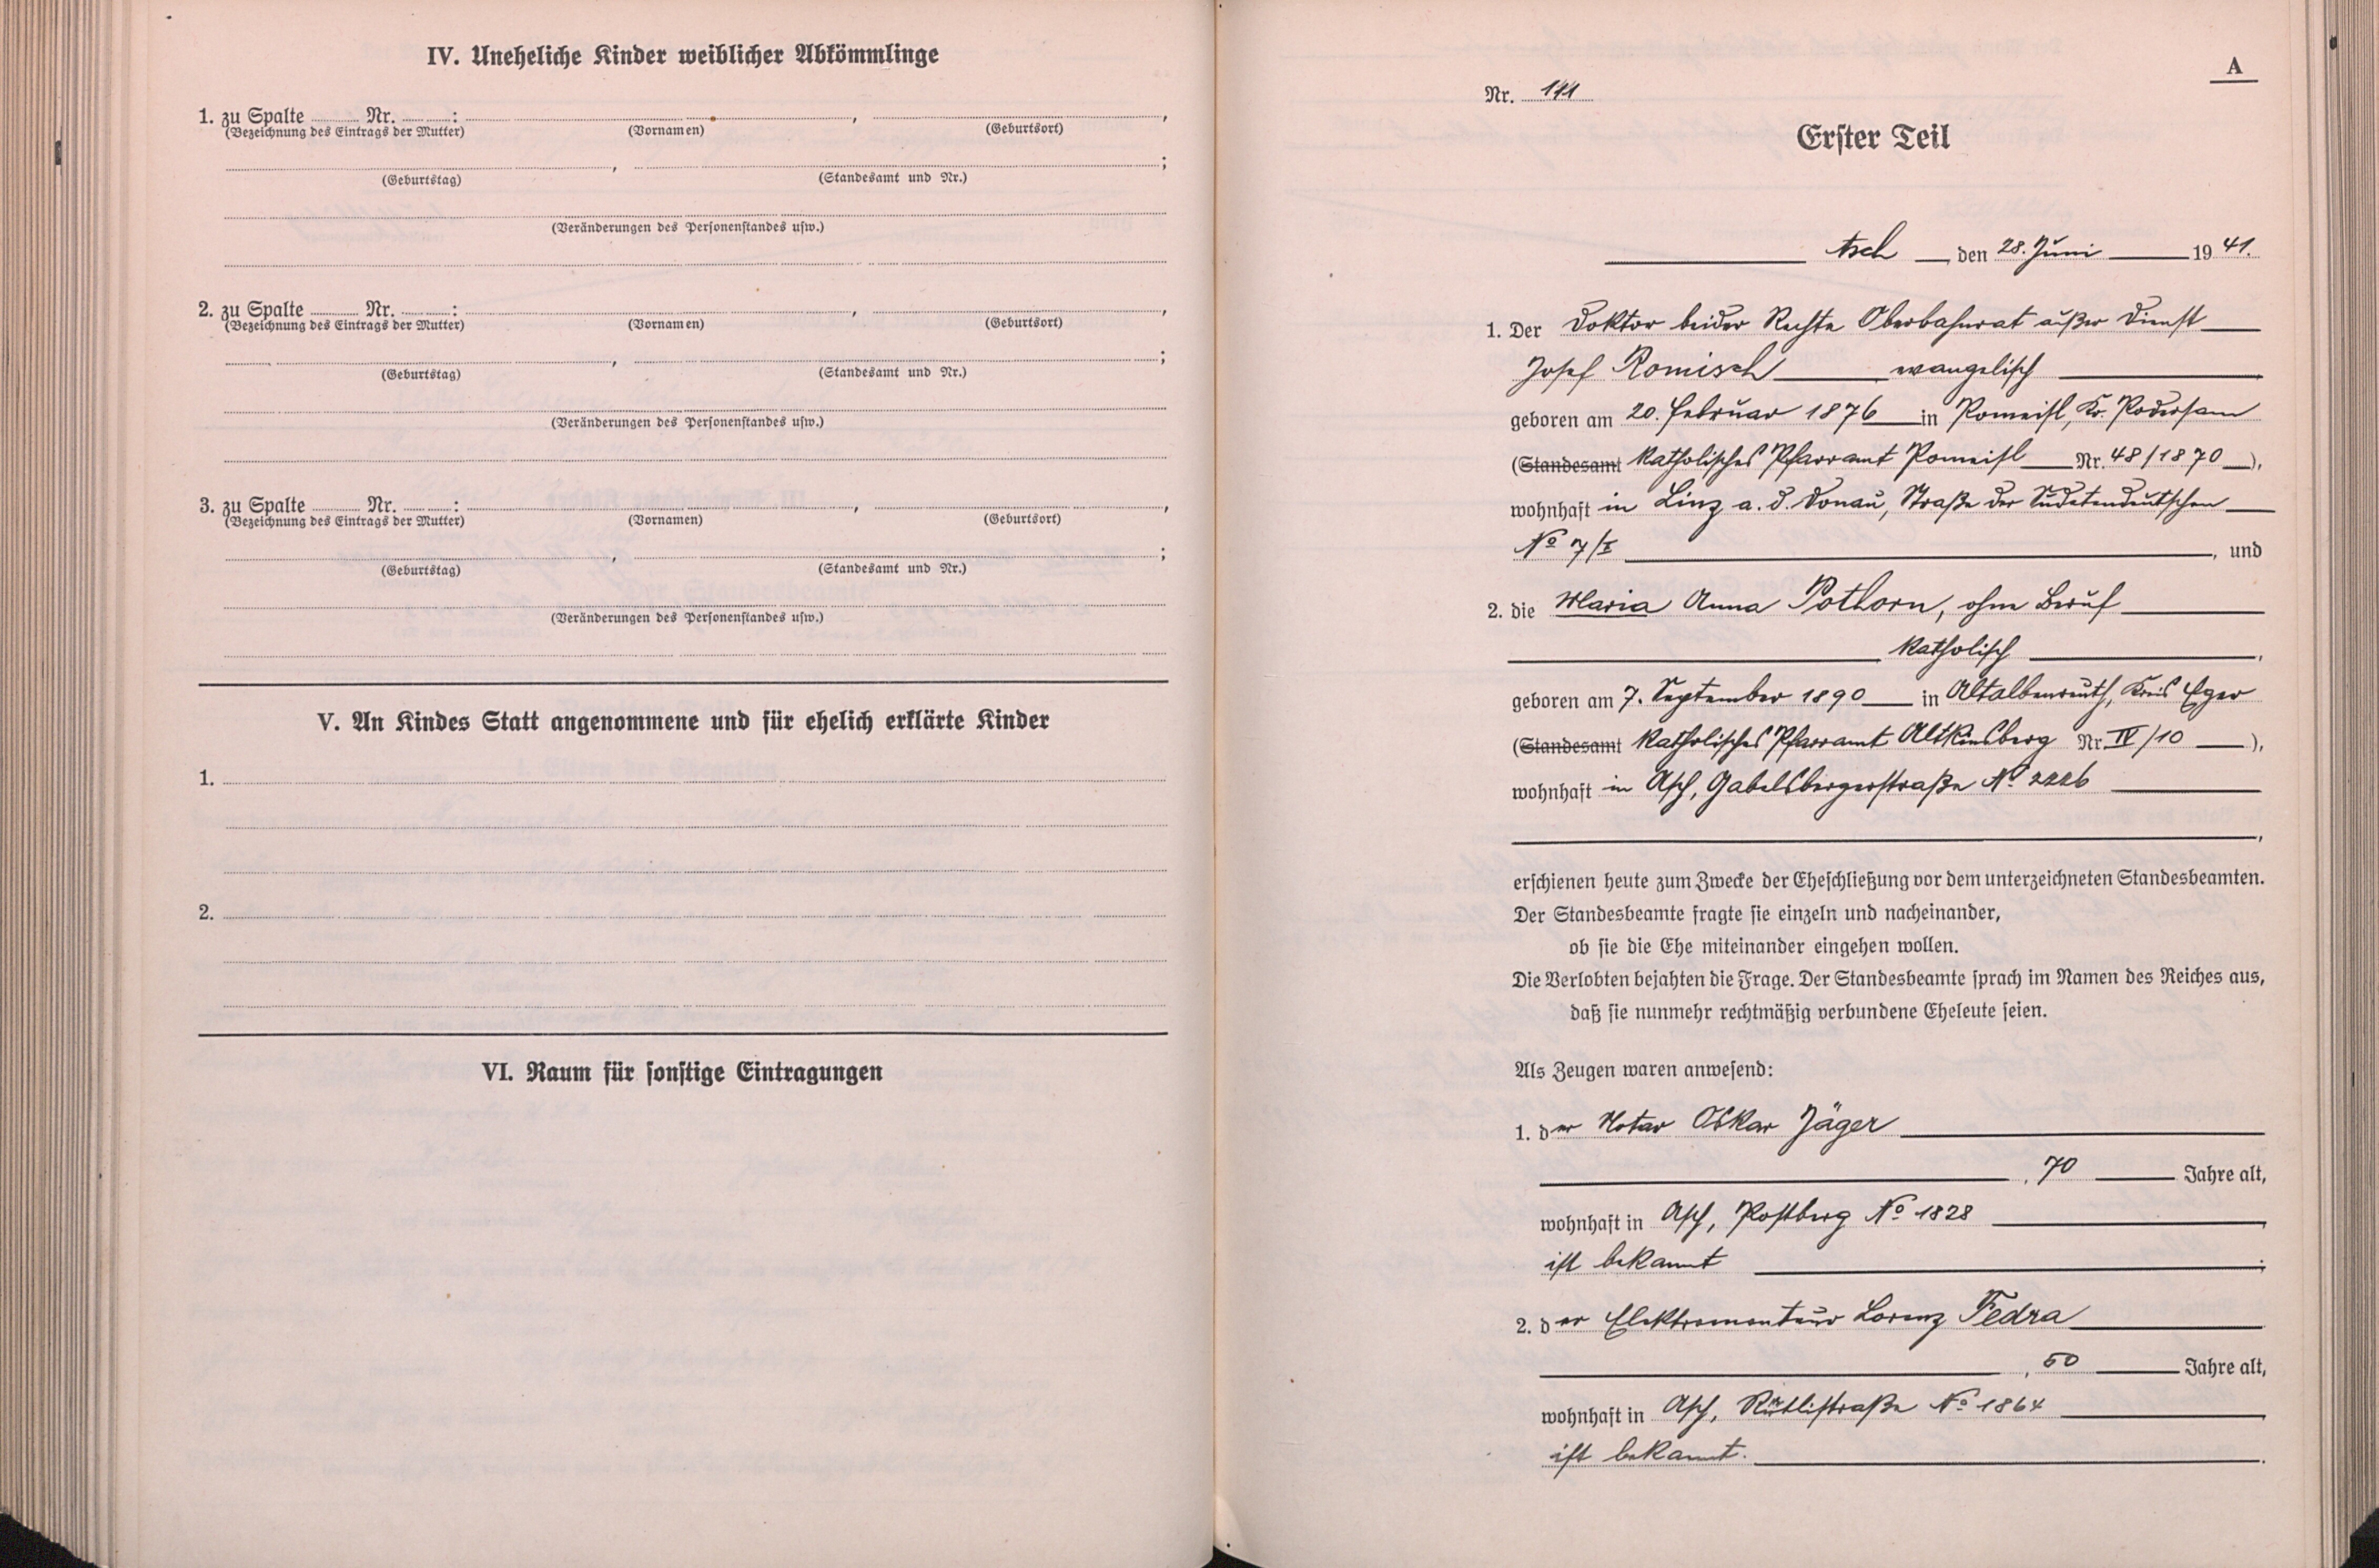 IV. Uneheliche Kinder weiblicher Abkömmlinge
1. zu Spalte ........ Nr. ........: ........, ........,
(Bezeichnung des Eintrags der Mutter) (Vornamen) (Geburtsort)
........, ........;
(Geburtstag) (Standesamt und Nr.)
(Veränderungen des Personenstandes usw.)
2. zu Spalte ........ Nr. ........: ........, ........,
(Bezeichnung des Eintrags der Mutter) (Vornamen) (Geburtsort)
........, ........;
(Geburtstag) (Standesamt und Nr.)
(Veränderungen des Personenstandes usw.)
3. zu Spalte ........ Nr. ........: ........, ........,
(Bezeichnung des Eintrags der Mutter) (Vornamen) (Geburtsort)
........, ........;
(Geburtstag) (Standesamt und Nr.)
(Veränderungen des Personenstandes usw.)
V. An Kindes Statt angenommene und für ehelich erklärte Kinder
1.
2.
VI. Raum für sonstige Eintragungen
A
Nr. 111
Erster Teil
Asch, den 28. Juni 1941.
1. Der Doktor beider Rechte Oberbahnrat außer Dienst
Josef Romisch evangelisch
geboren am 20. Februar 1876 in Pomeisl, Kr. Podersam
(Standesamt Katholisches Pfarramt Pomeisl Nr. 48/1870),
wohnhaft in Linz a. d. Donau, Straße der Sudetendeutschen
No 7/I, und
2. die Maria Anna Pothorn, ohne Beruf
katholisch,
geboren am 7. September 1890 in Altalbenreuth, Kreis Eger
(Standesamt Katholisches Pfarramt Altkinsberg Nr. IV/10),
wohnhaft in Asch, Gabelsbergerstraße No
erschienen heute zum Zwecke der Eheschließung vor dem unterzeichneten Standesbeamten.
Der Standesbeamte fragte sie einzeln und nacheinander,
ob sie die Ehe miteinander eingehen wollen.
Die Verlobten bejahten die Frage. Der Standesbeamte sprach im Namen des Reiches aus,
daß sie nunmehr rechtmäßig verbundene Eheleute seien.
Als Zeugen waren anwesend:
1. der Notar Oskar Jäger
, 70 Jahre alt,
wohnhaft in Asch, Postberg No 1828
ist bekannt;
2. der Elektromonteur Lorenz Fedra
, 50 Jahre alt,
wohnhaft in Asch, Rütlistraße No 1864
ist bekannt.